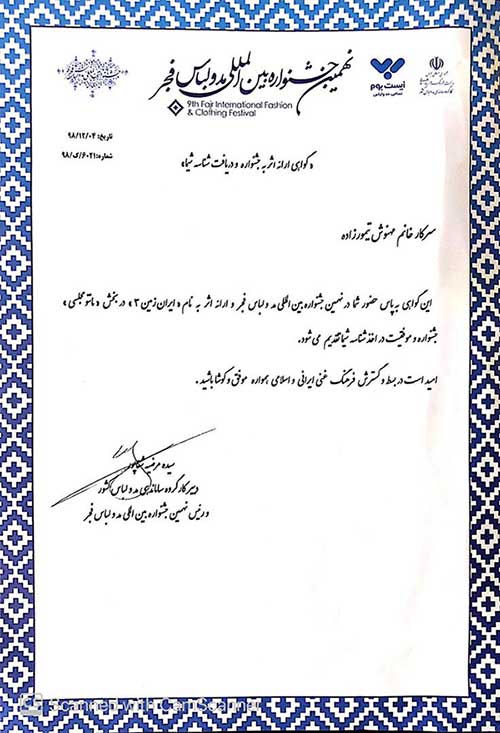 نهمین جشنواره بین المللی مد و لباس فجر
9th Fajr International Fashion
& Clothing Festival
ایست بوم
تاریخ: ۹۸/۱۲/۰۴
شماره: ۶۰۲۱/ی/۹۸
«گواهی ارائه اثر به جشنواره و دریافت شناسه شیما»
سرکار خانم مهنوش تیمورزاده
این گواهی به پاس حضور شما در نهمین جشنواره بین المللی مد و لباس فجر و ارائه اثر به نام «ایران زمین ۳» در بخش «مانتو مجلسی»
جشنواره و موفقیت در اخذ شناسه شیما تقدیم می شود.
امید است در بسط و گسترش فرهنگ غنی ایرانی و اسلامی همواره موفق و کوشا باشید.
سیده مرضیه شفاپور
دبیر کارگروه ساماندهی مد و لباس کشور
و رئیس نهمین جشنواره بین المللی مد و لباس فجر
Scanned with CamScanner